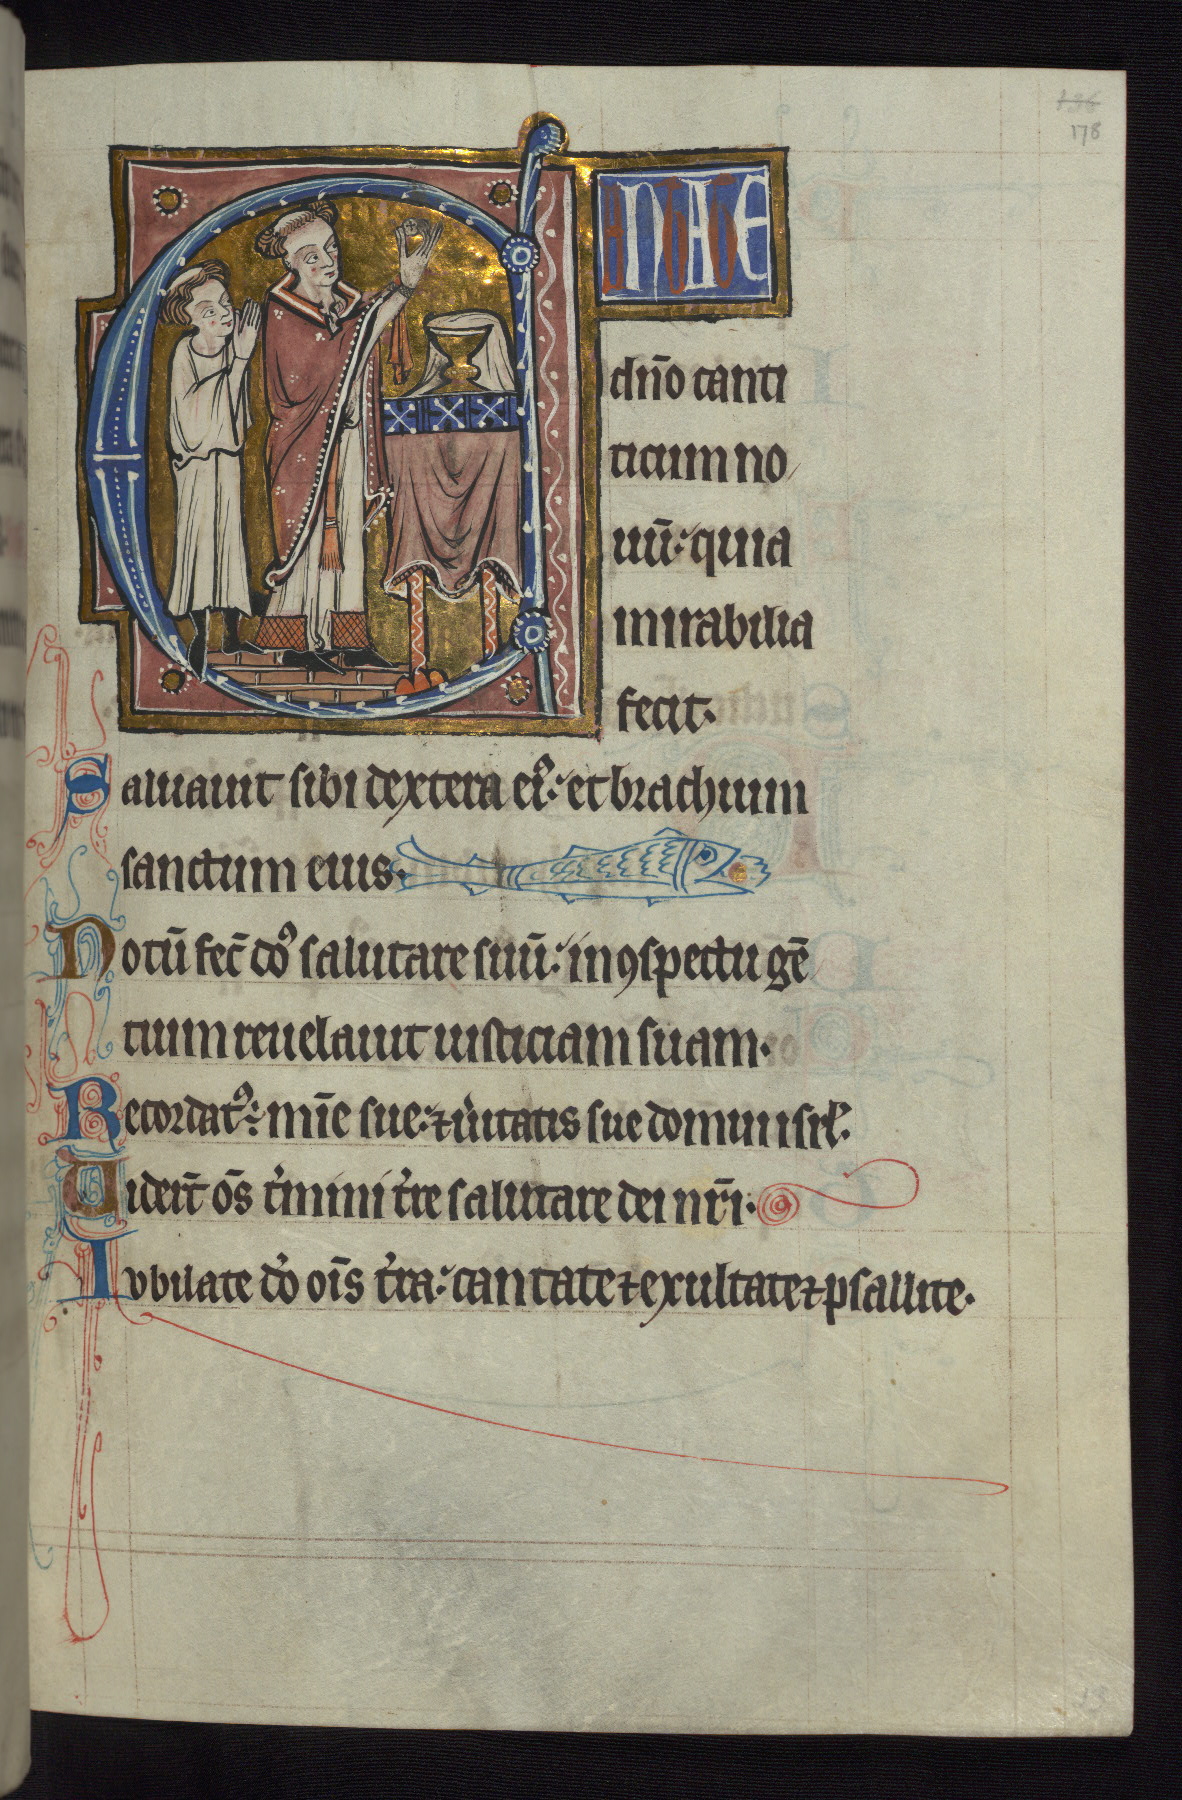 136
178
CANTATE
dn̄o canti
ticum no
uū: quia
mirabilia
fecit.
Saluauit sibi dextera eiꝰ: et brachium
sanctum eius.
Notū fec̄ dn̄s salutare suū: in ꝯspectu gē
tium reuelauit iusticiam suam.
Recordatꝰ: mīe sue: ⁊ ueritatis sue domui isrl̄.
Uider̄t oēs t̄mini t̄re salutare dei nr̄i.
Iubilate dō oīs t̄ra: cantate ⁊ exultate ⁊ psallite.
13